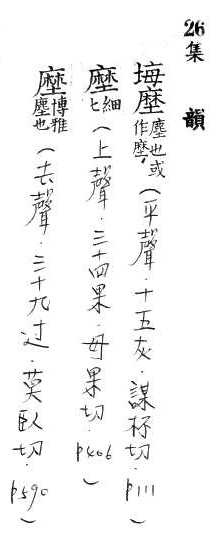 26集 韻
塺塵也或作(平聲.十五灰.謀杯切.p111)
塺細(上聲.三十四果.母果切.p406)
塺博雅塵也(去聲.三十九过.莫臥切.p590)